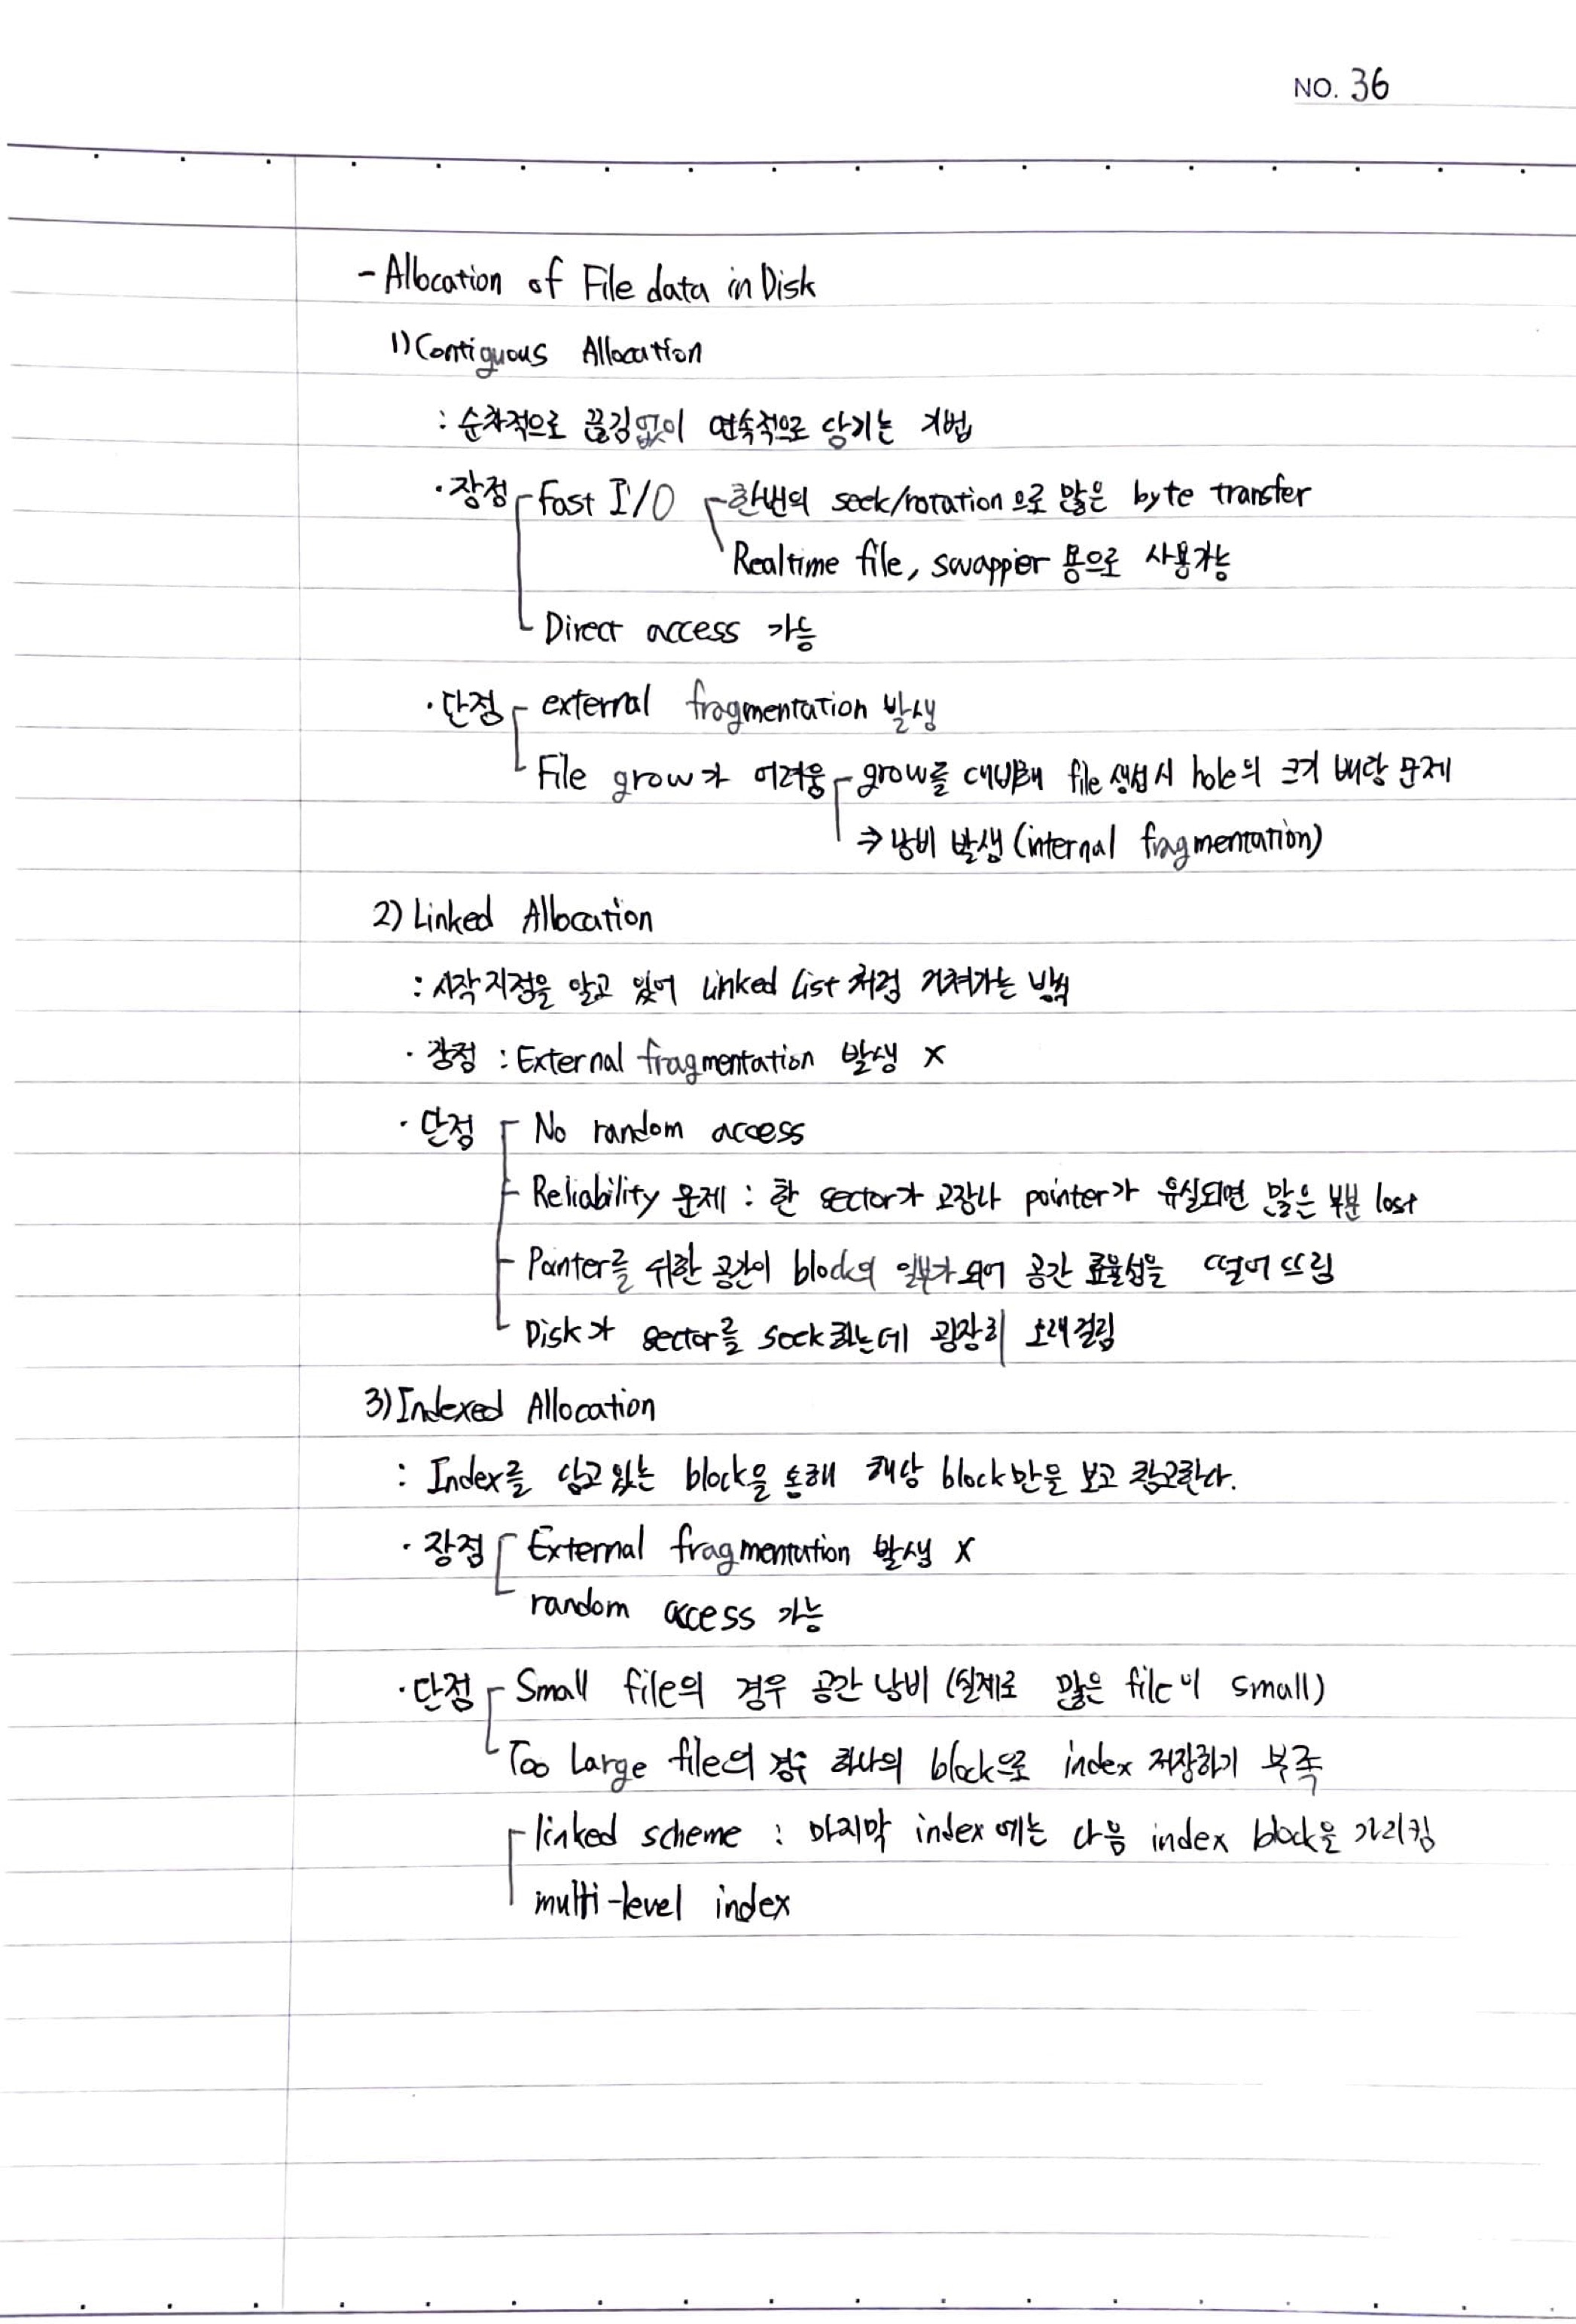 NO. 36
- Allocation of File data in Disk
1) Contiguous Allocation
: 순차적으로 끊김없이 연속적으로 담기는 기법
· 장점 Fast I/O 한번의 seek/rotation으로 많은 byte transfer
Realtime file, swappier 용으로 사용가능
Direct access 가능
· 단점 external fragmentation 발생
File grow가 어려움 grow를 대비해 file 생성시 hole의 크기 배당 문제
⇒ 낭비 발생 (internal fragmentation)
2) Linked Allocation
: 시작지점을 알고 있어 Linked List처럼 거쳐가는 방식
· 장점 : External fragmentation 발생 X
· 단점 No random access
Reliability 문제 : 한 sector가 고장나 pointer가 유실되면 많은 부분 lost
Pointer를 위한 공간이 block의 일부가 되어 공간 효율성을 떨어뜨림
Disk가 sector를 seek하는데 굉장히 오래걸림
3) Indexed Allocation
: Index를 담고 있는 block을 통해 해당 block만을 보고 참고한다.
· 장점 External fragmentation 발생 X
random access 가능
· 단점 Small file의 경우 공간 낭비 (실제로 많은 file이 small)
Too Large file의 경우 하나의 block으로 index 저장하기 부족
linked scheme : 마지막 index에는 다음 index block을 가리킴
multi-level index